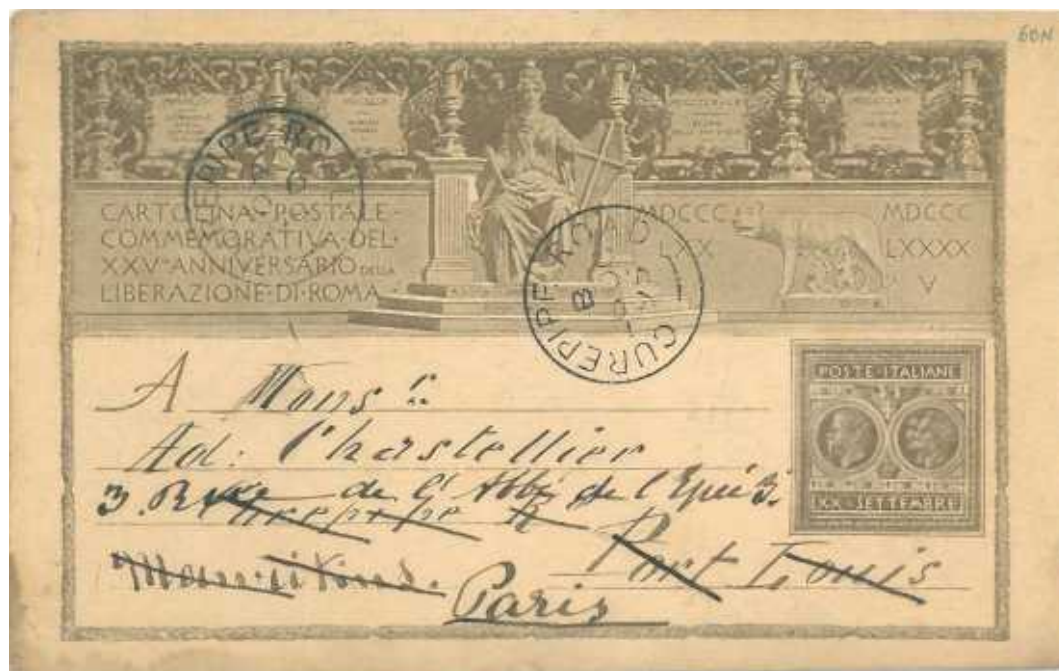 60N
CARTOLINA·POSTALE·
COMMEMORATIVA·DEL·
XXV° ANNIVERSARIO DELLA
LIBERAZIONE·DI·ROMA
MDCCC
LXX
MDCCC
LXXXX
V
EPIPE RO
CUREPIPE ROAD
B
POSTE·ITALIANE
XX·SETTEMBRE
A Mons r.
Ad: Chastellier
3. Rue de l'Abbé de l'Epée 3.
Curepipe R
Port Louis
Mauritius.
Paris